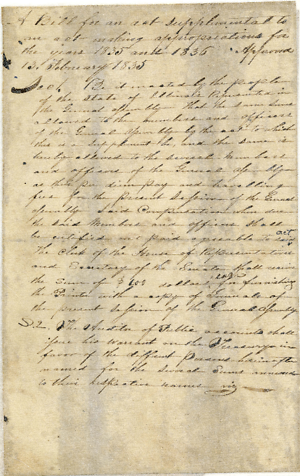 A Bill for an act Supplimental to
an act making appropriations for
the years 1835 and 1836 Approved
13th February 1835
Sec 1. Be it enacted by the people
of the State of Illinois Represented in
the General Assembly That the same sums
allowed to the members and officers
of the General Assembly by the act to which
this is a Supplement be, and the same is
hereby allowed to the several Members
and officers of the General Assembly
as their per diem pay and travelling
fees for the present Session of the General
Assembly Said Compensation when due
to said Members and officers Shall
be certified and paid agreeable to said act
The Clerk of the House of Representatives
and Secretary of the Senate Shall receive
the Sum of $ dollars, for furnishing
the Printer with a copy of Journals of
the present Session of the General Assembly
S 2. The Auditor of Public accounts shall
issue his warrant on the Treasury in
favor of the different persons hereinafter
named for the Several Sums annexed
to their respective names viz